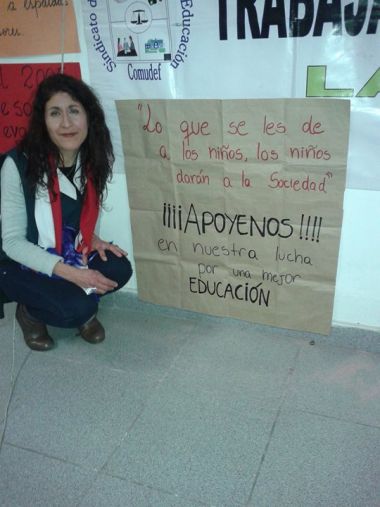 a espalda
TRABAJA
Sindicato de
Educación
Comudef
LA
"Lo que se les de
a los niños, los niños
darán a la Sociedad"
¡¡¡¡APOYENOS!!!!
en nuestra lucha
por una mejor
EDUCACIÓN